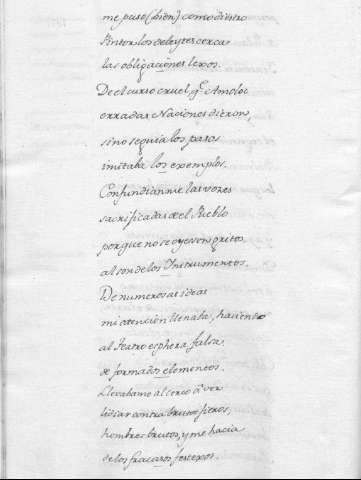 me puso (bien) como diestro
Pintor los deleytes cerca
las obligaciones lexos.
De el curso cruel, q.e a Moloc
erradas Naciones dieron,
sino seguia los pasos
imitaba los exemplos.
Confundianme las vozes
sacrificadas de el Pueblo
porque no se oyesen gritos
al son de los Instrumentos.
De numerosas ideas
mi atencion llenaba, haciendo
al Teatro esphera falsa
de formados elementos.
Llevabame al cerco à ver
lidiar contra brutos fieros,
hombres brutos, y me hacia
de los fracasos festexos.